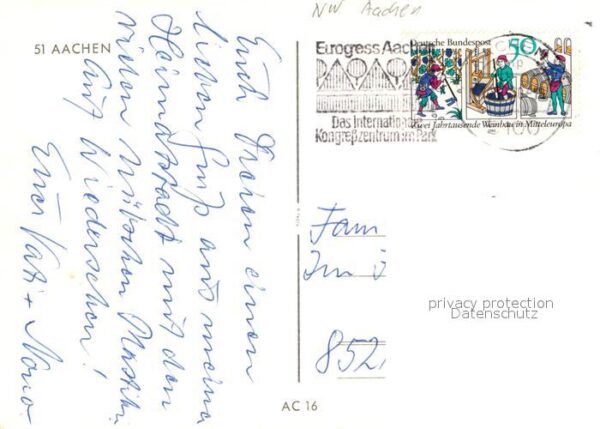 NW Aachen
51 AACHEN
Eurogress Aachen
Das Internationale
Kongreßzentrum im Park
Deutsche Bundespost
50
Zwei Jahrtausende Weinbau in Mitteleuropa
Euch Dreien einen
lieben Gruß aus meiner
Heimatstadt mit den
vielen hübschen
Auf Wiedersehen!
Euer +
Fam
Im
852
privacy protection
Datenschutz
AC 16